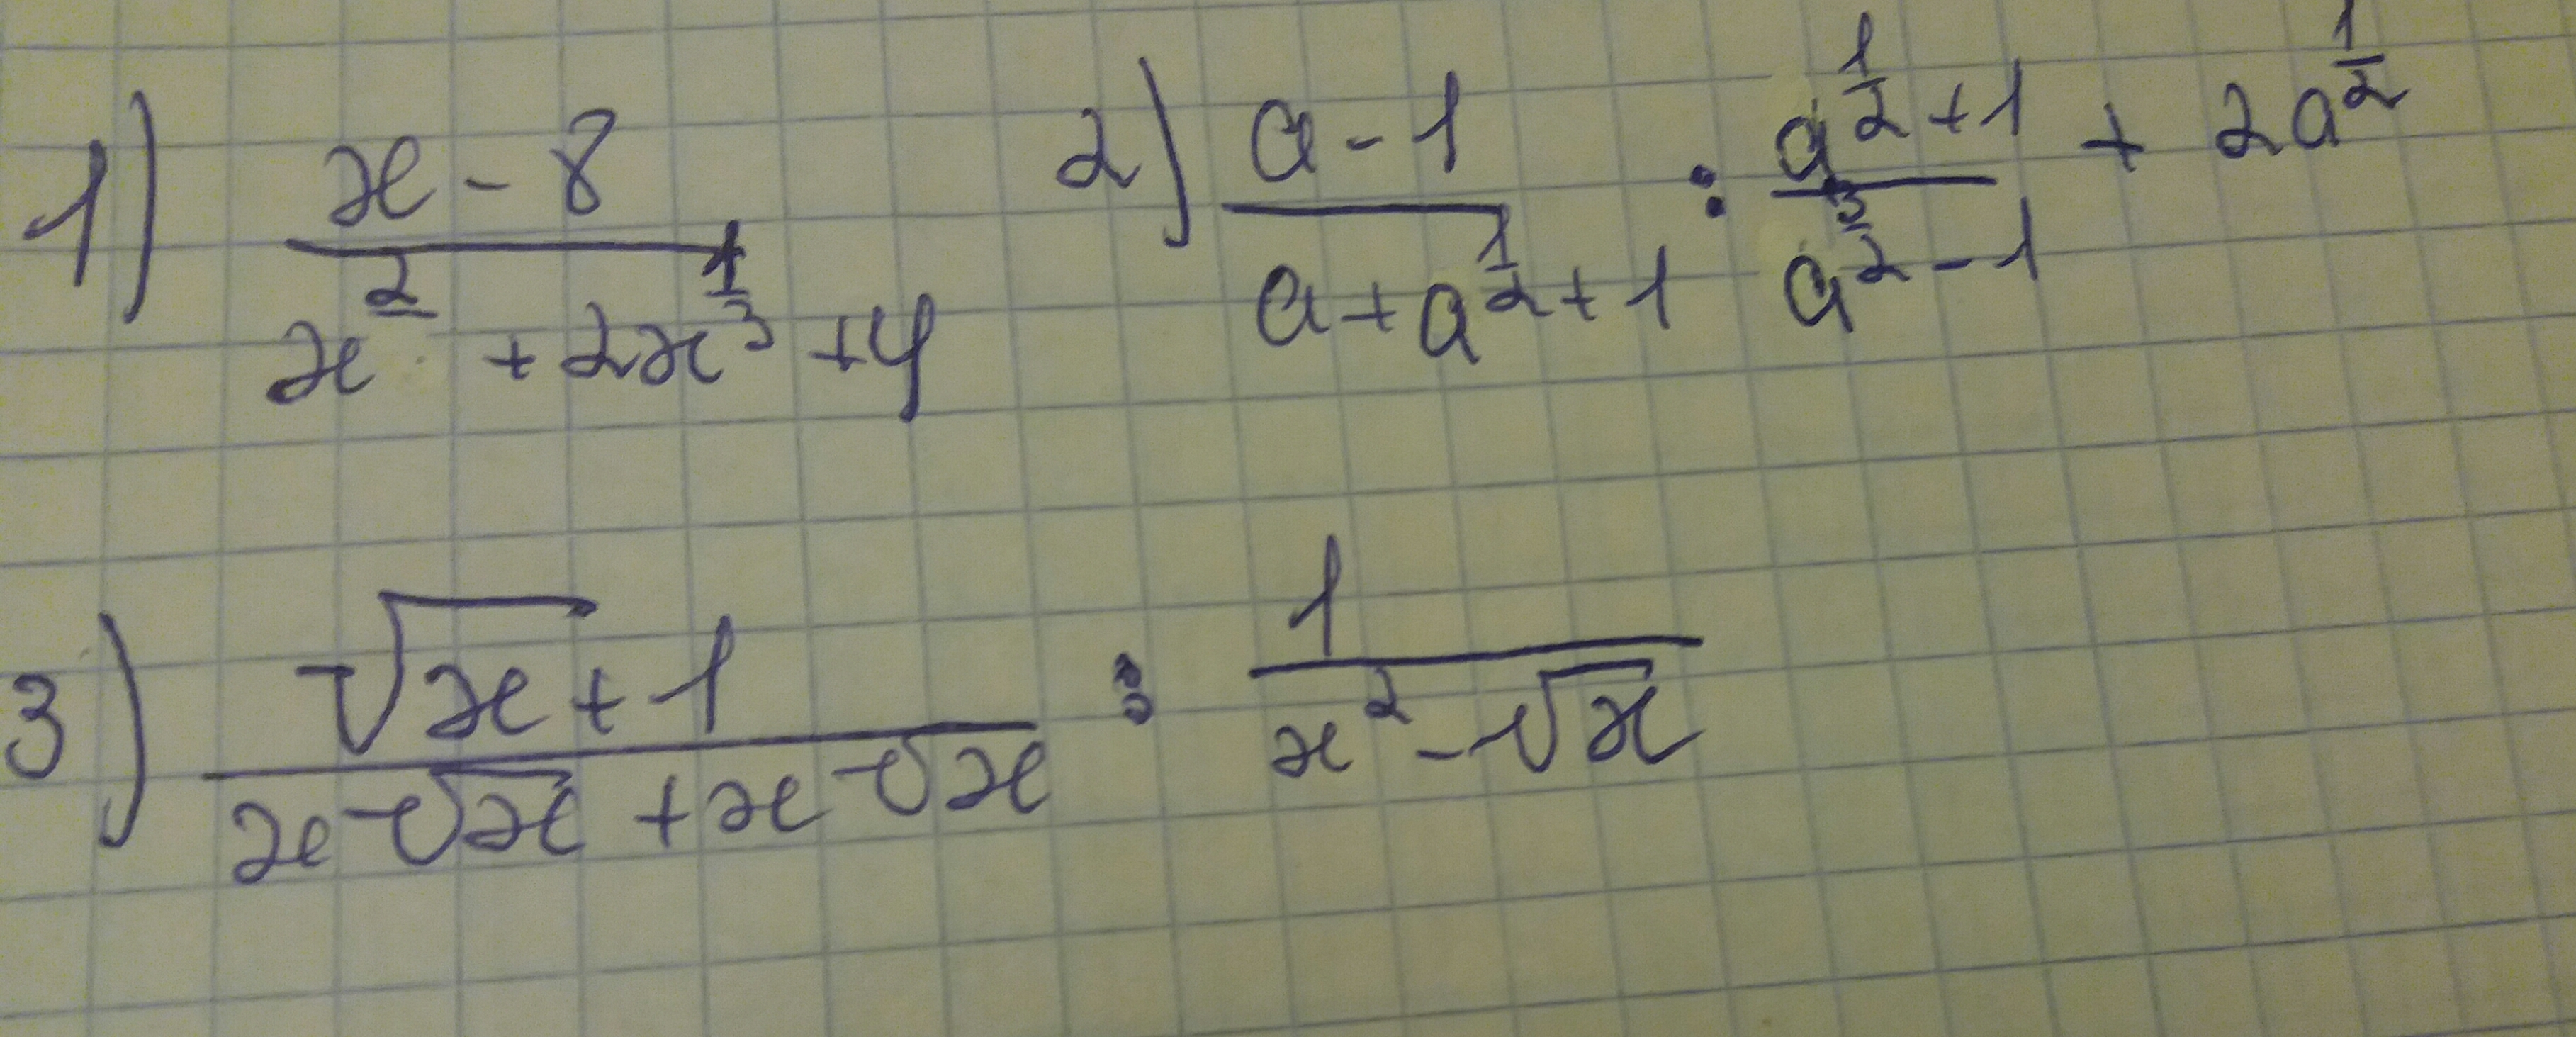 1) \frac{x-8}{x^{2}+2x^{\frac{1}{3}}+4} 2) \frac{a-1}{a+a^{\frac{1}{2}}+1} : \frac{a^{\frac{1}{2}}+1}{a^{\frac{3}{2}}-1} + 2a^{\frac{1}{2}}
3) \frac{\sqrt{x}+1}{x\sqrt{x}+x\sqrt{x}} : \frac{1}{x^{2}-\sqrt{x}}